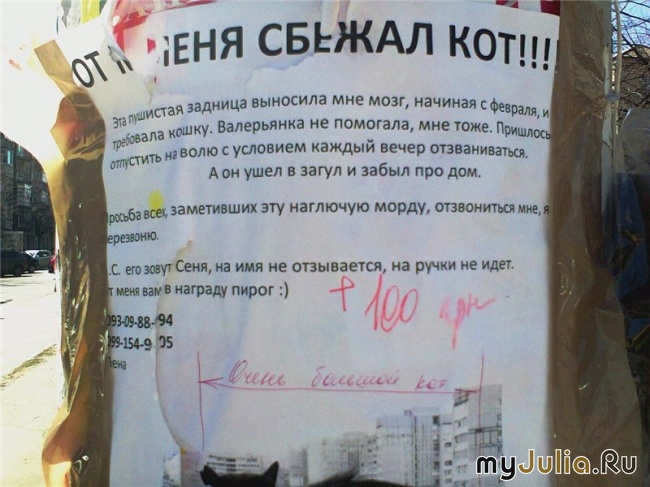 ОТ МЕНЯ СБЕЖАЛ КОТ!!!!
Эта пушистая задница выносила мне мозг, начиная с февраля, и
требовала кошку. Валерьянка не помогала, мне тоже. Пришлось
отпустить на волю с условием каждый вечер отзваниваться.
А он ушел в загул и забыл про дом.
Просьба всех, заметивших эту наглючую морду, отзвониться мне, я
перезвоню.
.С. его зовут Сеня, на имя не отзывается, на ручки не идет.
от меня вам в награду пирог :)
+ 100 грн
093-09-88- 94
099-154-9 05
Лена
Очень большой кот
myJulia.Ru